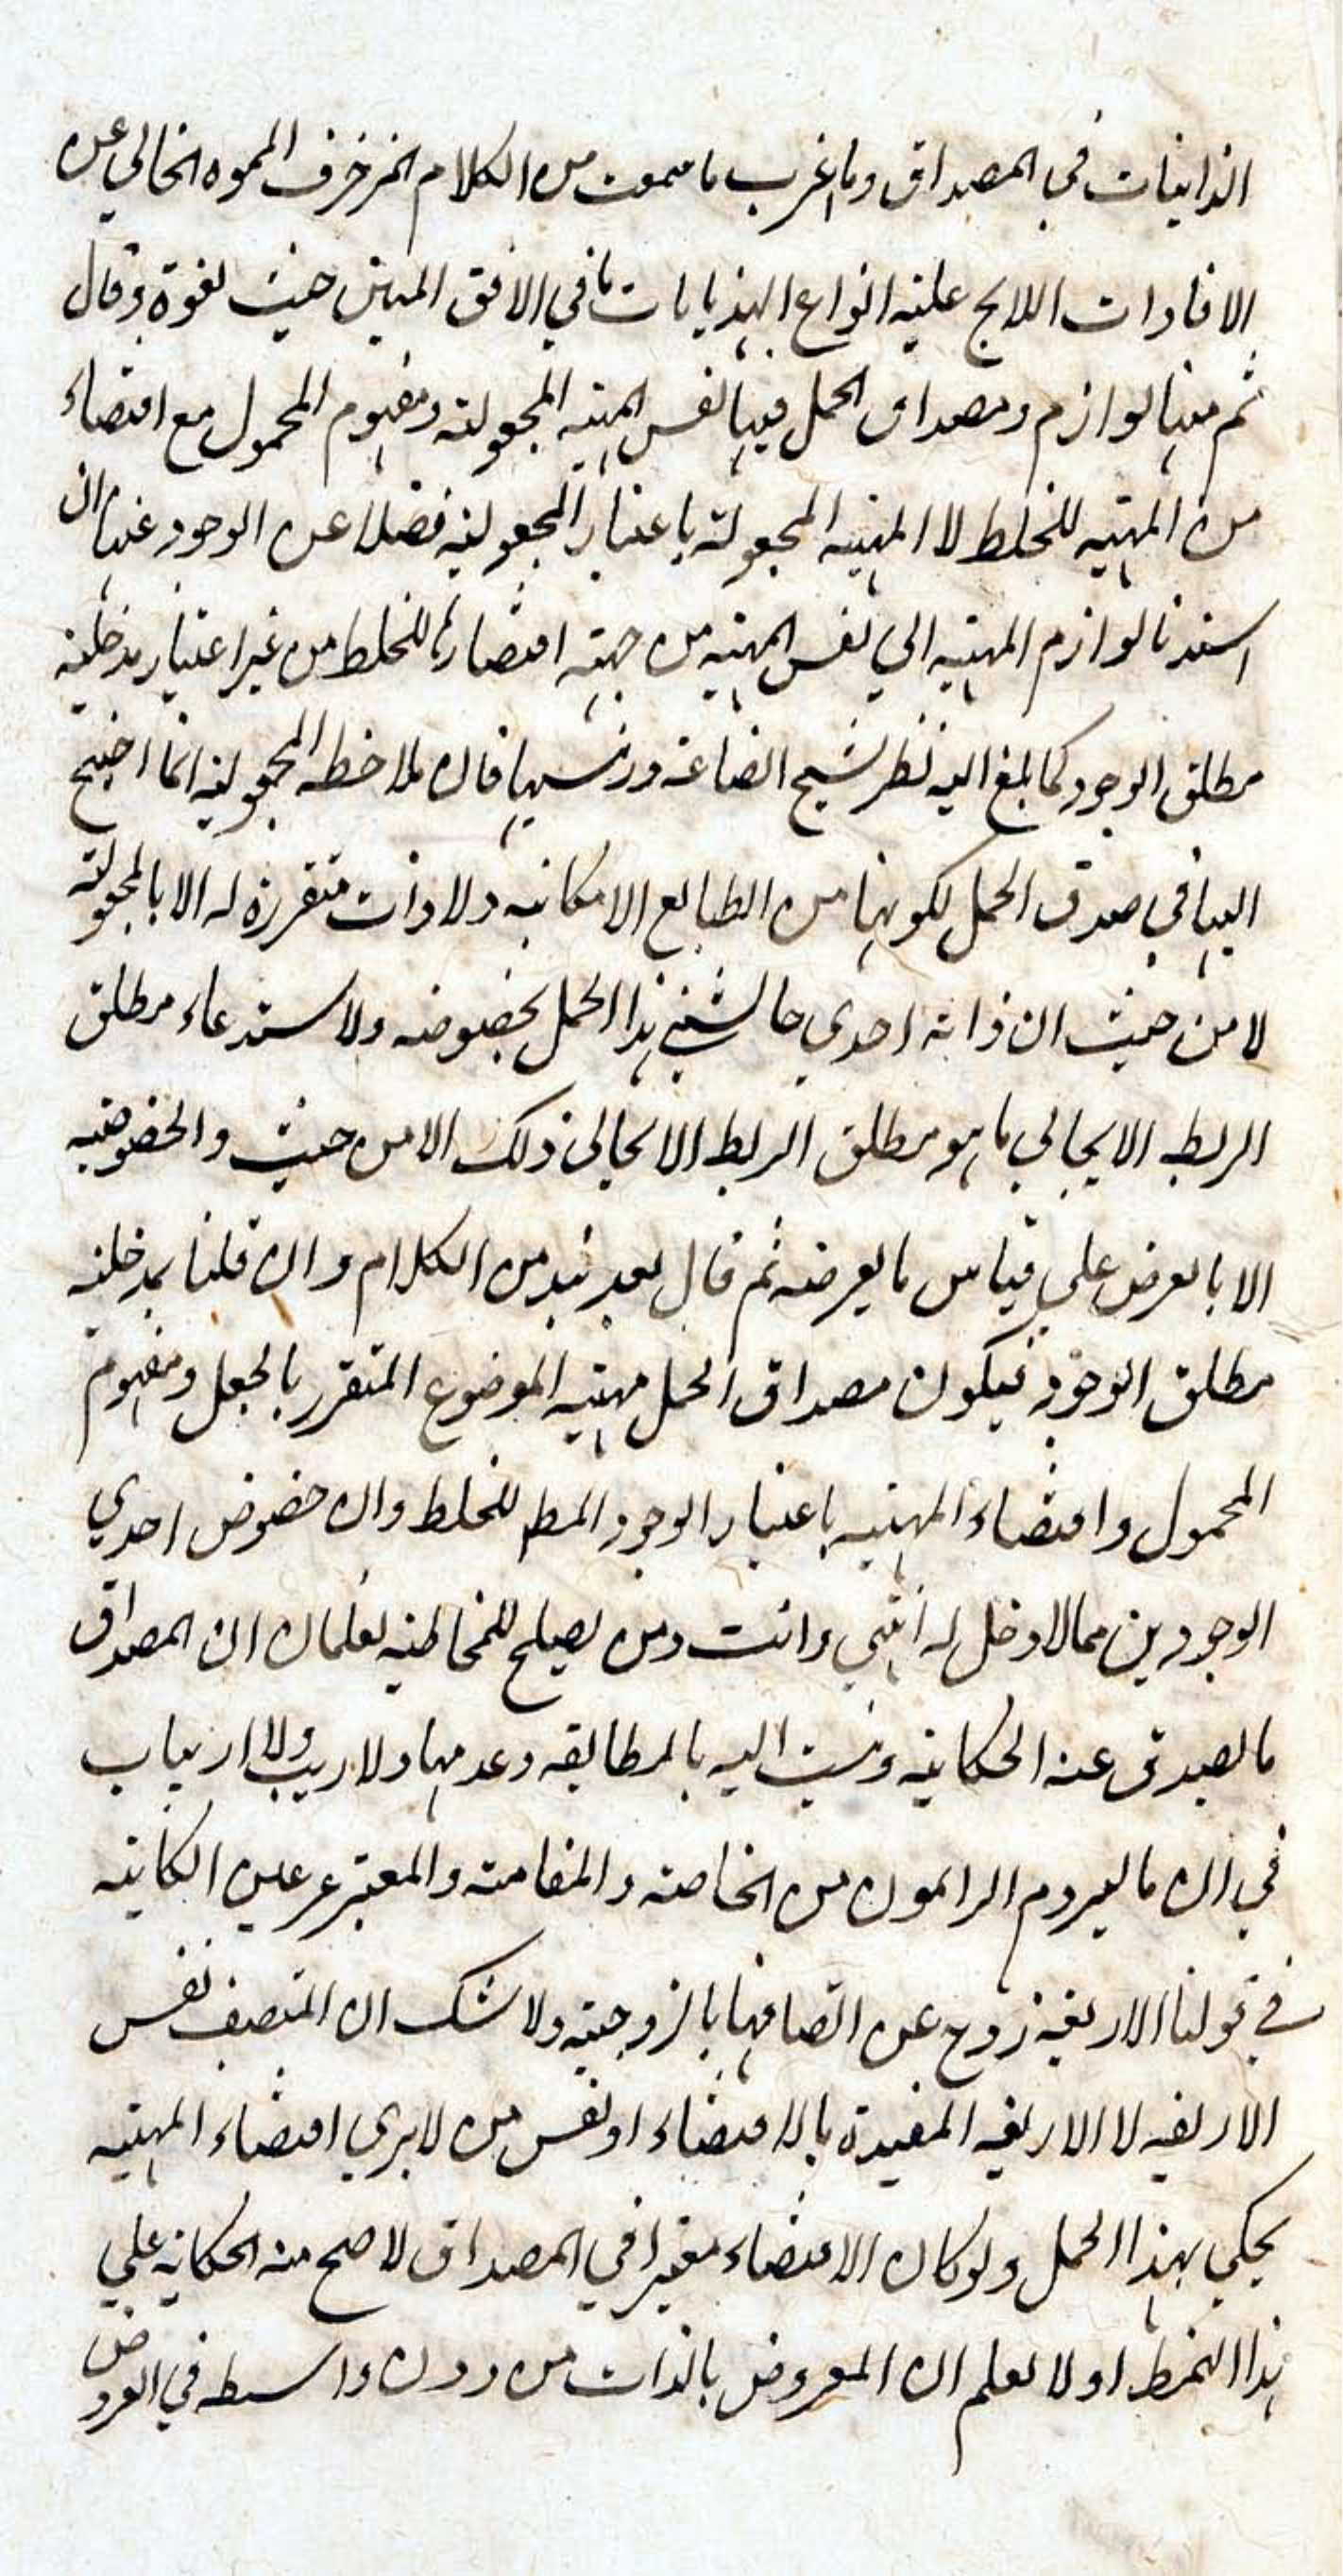 الذاتيات في المصداق وما اغرب ما سمعت من الكلام المزخرف المموه الخالي عن
الافادات اللايح عليه انواع الهذيانات ما في الافق المبين حيث تفوه وقال
ثم منها لوازم ومصداق الحمل فيها نفس المهية المجعولة ومفهوم المحمول مع اقتضاء
من المهية للخلط لا المهية المجعولة باعتبار المجعولية فضلا عن الوجود غير ان
استدنا لوازم المهية الي نفس المهية من جهة اقتضائها للخلط من غير اعتبار مدخلية
مطلق الوجود كما بلغ اليه نظر شيخ الصناعة ورئيسها فان ملاحظة المجعولية انما احتيج
اليها في صدق الحمل لكونها من الطبايع الامكانية ولا ذات متقررة له الا بالمجعولية
لا من حيث ان ذاته احدي حاشيتي هذا الحمل بخصوصه ولا ستدعاء مطلق
الربط الايجابي بما هو مطلق الربط الايجابي ذلك الا من حيث والخصوصية
الا بالعرض علي قياس ما يعرضه ثم قال بعد نبذ من الكلام وان قلنا بمدخلية
مطلق الوجود فيكون مصداق الحمل مهية الموضوع المتقرر بالجعل ومفهوم
المحمول واقتضاء المهية باعتبار الوجود المط للخلط وان خصوص احدي
الوجودين مما لا دخل له انتهي وانت ومن يصلح للمخاطبة تعلمان ان المصداق
ما يصدق عنه الحكاية وينسب اليه بالمطابقة وعدمها ولا ريب ولا ارتياب
في ان ما يروم الرامون من الخاصة والعامة والمعتبر عن الحكاية
في قولنا الاربعة زوج عن اتصافها بالزوجية ولا شك ان المتصف نفس
الاربعة لا الاربعة المقيدة بالاقتضاء او نفس من لا يري اقتضاء المهية
يحكي بهذا الحمل ولو كان الاقتضاء معتبرا في المصداق لا صح منه الحكاية علي
هذا النمط اولا تعلم ان المعروض بالذات من دون واسطه في العروض